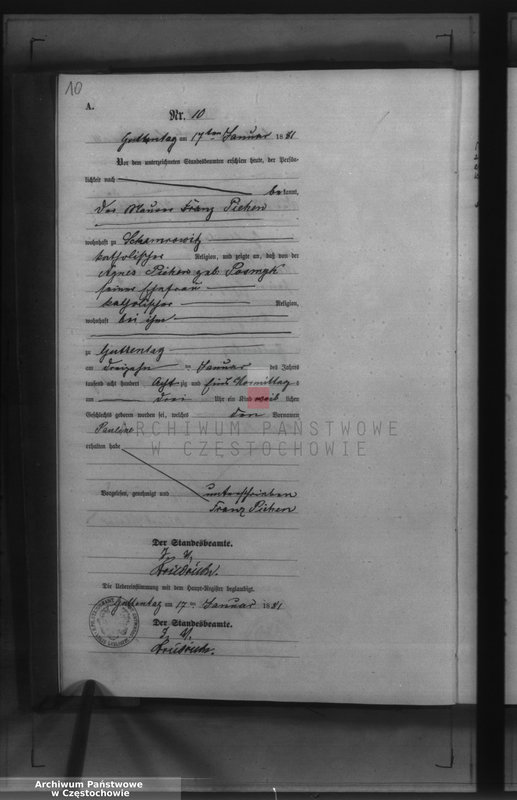 10
A.
Nr. 10
Guttentag am 17ten Januar 1881
Vor dem unterzeichneten Standesbeamten erschien heute, der Persön-
lichkeit nach
bekannt,
der Maurer Franz Pieken
wohnhaft zu
katholischer Religion, und zeigte an, daß von der
Agnes Pieken geb.
seiner Ehefrau
katholischer Religion,
wohnhaft bei ihm
zu Guttentag
am dreizehn Januar des Jahres
tausend acht hundert Achtzig und Eins Vormittag s
um drei Uhr ein Kind weiblichen
Geschlechts geboren worden sei, welches den Vornamen
Pauline
erhalten habe
ARCHIWUM PAŃSTWOWE
W CZĘSTOCHOWIE
Vorgelesen, genehmigt und unterschrieben
Franz Pieken
Der Standesbeamte.
Die Uebereinstimmung mit dem Haupt-Register beglaubigt.
Guttentag am 17ten Januar 1881
Der Standesbeamte.
Archiwum Państwowe
w Częstochowie